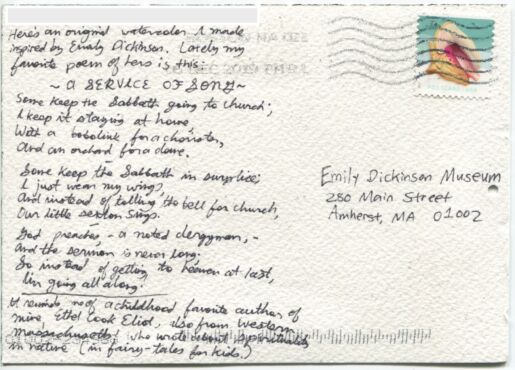 Here's an original watercolor I made
inspired by Emily Dickinson. Lately my
favorite poem of hers is this:
~ A SERVICE OF SONG ~
Some keep the Sabbath going to church;
I keep it staying at home
With a bobolink for a chorister,
And an orchard for a dome.
Some keep the Sabbath in surplice;
I just wear my wings,
And instead of tolling the bell for church,
Our little sexton sings.
God preaches, - a noted clergyman, -
And the sermon is never long;
So instead of getting to heaven at last,
I'm going all along.
It reminds me of a childhood favorite author of
mine, Ethel Cook Eliot, also from Western
Massachusetts, who wrote about
in nature (in fairy-tales for kids.)
Emily Dickinson Museum
280 Main Street
Amherst, MA 01002